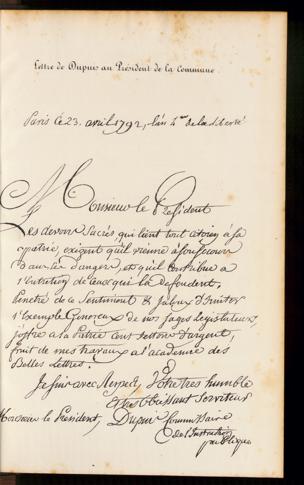 Lettre de Dupuis au Président de la Commune
Paris le 23. avril 1792, l'an 4me de la Liberté
Monsieur le Président
Les devoirs Sacrés qui lient tout citoien à sa
patrie, exigent qu'il vienne à son secours
dans les dangers, et qu'il contribue à
l'entretien de ceux qui la defendent.
Penetré de ce Sentiment & jaloux d'imiter
l'Exemple Genereux de nos sages Legislateurs,
j'offre à la Patrie cent jettons d'argent,
fruit de mes travaux à l'academie des
Belles Lettres.
Je suis avec Respect, Votre tres humble
et tres obeissant Serviteur
Monsieur le President, Dupuis Commissaire
de l'Instruction
publique